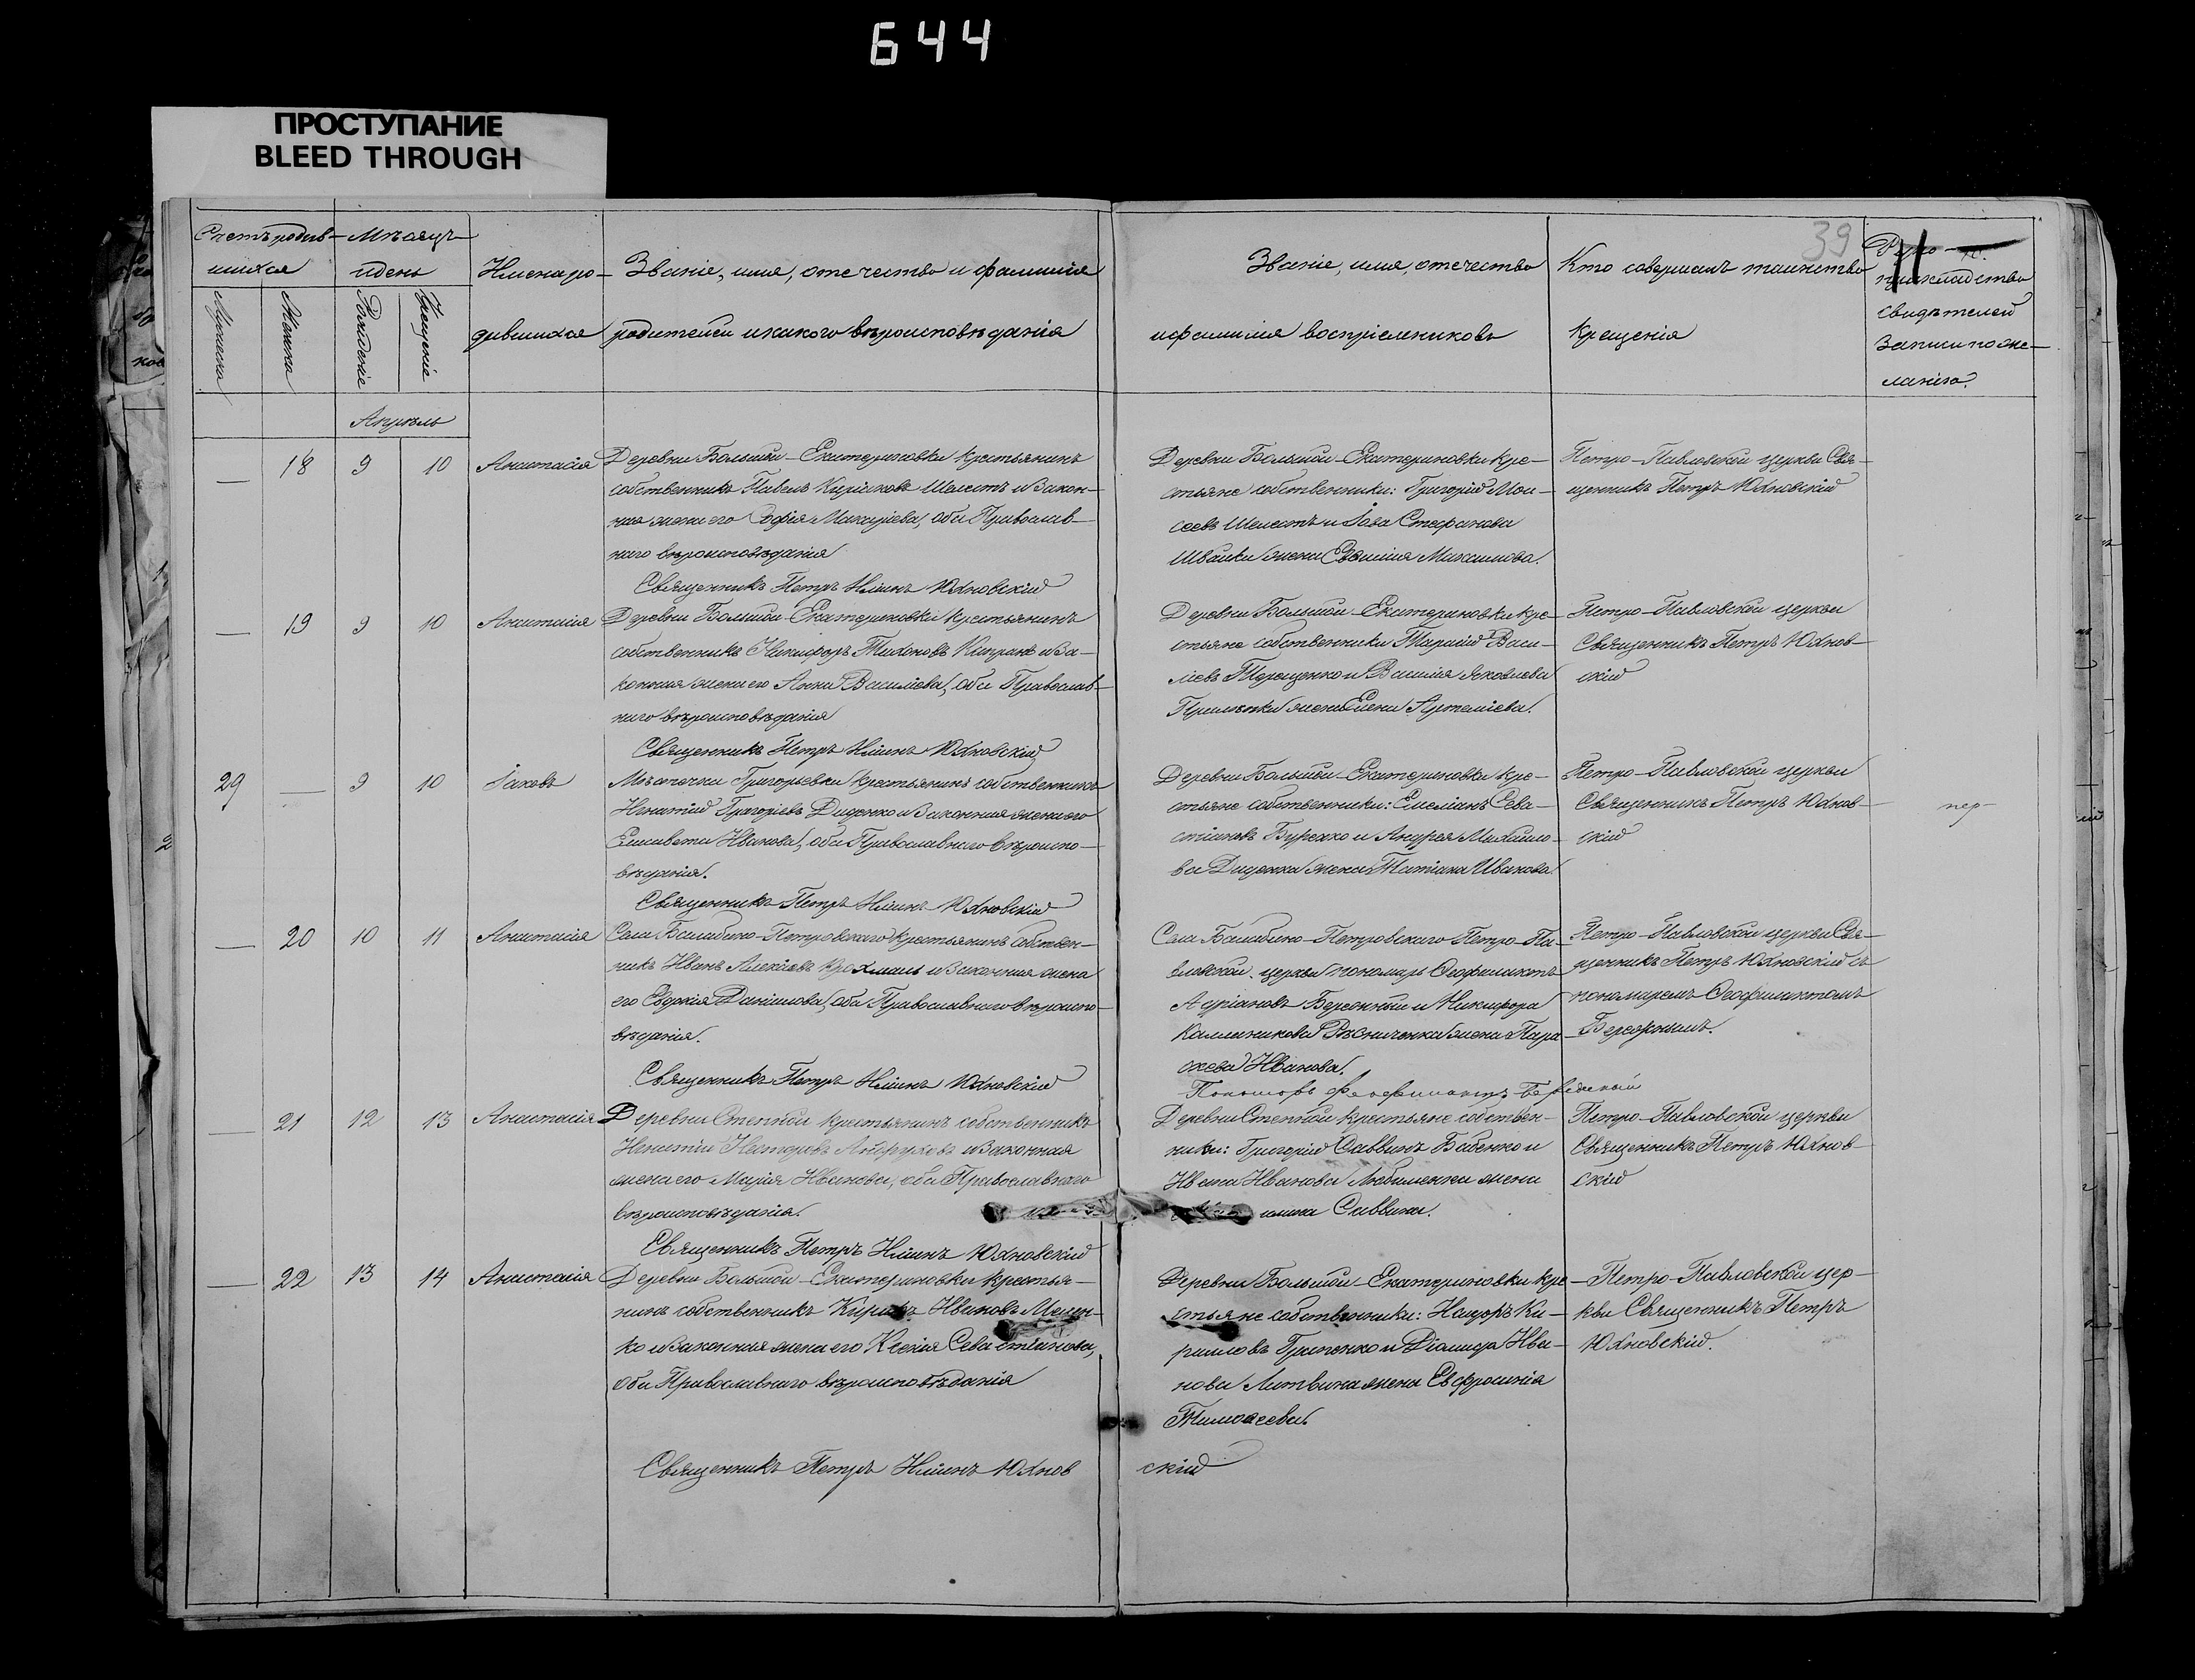 644
ПРОСТУПАНИЕ
BLEED THROUGH
39
Счетъ родив-
шихся
Мѣсяцъ
и день
Имена ро-
дившихся
Званіе, имя, отечество и фамилія
родителей и какого вѣроисповѣданія
Званіе, имя, отечество
и фамилія воспріемниковъ
Кто совершалъ таинство
Крещенія
Руко-
прикладство
свидѣтелей
записи по же-
ланію.
Мужеска
Женска
Рожденіе
Крещеніе
Апрѣль
— 18 9 10 Анастасія
Деревни Большой-Екатериновки крестьянинъ
собственникъ Павелъ Киріаковъ Шелестъ и закон-
ная жена его Софія Макаріева, оба Православ-
наго вѣроисповѣданія
Священникъ Петръ Юхновскій
Деревни Большой-Екатериновки кре-
стьяне собственники: Григорій Мои-
сеевъ Шелестъ и Іова Стефанова
Швайки жена Максимова.
Петро-Павловской церкви Свя-
щенникъ Петръ Юхновскій
— 19 9 10 Анастасія
Деревни Большой-Екатериновки крестьянинъ
собственникъ Никифоръ Тихоновъ и за-
конная жена его Анна Василіева, оба Православ-
наго вѣроисповѣданія
Священникъ Петръ Юхновскій
Деревни Большой-Екатериновки кре-
стьяне собственники Тарасій Васи-
ліевъ Терещенко и Василія Яковлева
жена Елена Артеміева.
Петро-Павловской церкви
Священникъ Петръ Юхнов-
скій
29 — 9 10 Іаковъ
Мѣстечка Григорьевки крестьянинъ собственникъ
Игнатій Григоріевъ Диденко и законная жена его
Елисавета Иванова, оба Православнаго вѣроиспо-
вѣданія.
Священникъ Петръ Юхновскій
Деревни Большой-Екатериновки кре-
стьяне собственники: Емеліанъ Сева-
стіановъ Буренко и Андрея Михайло-
ва Диденка жена Татіана Иванова
Петро-Павловской церкви
Священникъ Петръ Юхнов-
скій
— 20 10 11 Анастасія
Села Балабино-Петровскаго крестьянинъ собствен-
никъ Иванъ Алексіевъ Крохмаль и законная жена
его Евдокія Даніилова, оба Православнаго вѣроиспо-
вѣданія.
Священникъ Петръ Юхновскій
Села Балабино-Петровскаго Петро-Па-
вловской церкви пономарь Феофилактъ
Адріановъ и Никифора
Каллиникова жена Пара-
скева Иванова.
Пономарь Феофилактъ
Петро-Павловской церкви Свя-
щенникъ Петръ Юхновскій съ
пономаремъ Феофилактомъ
— 21 12 13 Анастасія
Деревни Степной крестьянинъ собственникъ
Игнатій Несторовъ и законная
жена его Марія Иванова, оба Православнаго
вѣроисповѣданія.
Священникъ Петръ Юхновскій
Деревни Степной крестьяне собствен-
ники: Григорій Саввинъ Бабенко и
Ивана Иванова жена
Саввина.
Петро-Павловской церкви
Священникъ Петръ Юхнов-
скій
— 22 13 14 Анастасія
Деревни Большой-Екатериновки крестья-
нинъ собственникъ Ивановъ
ко и законная жена его Ксенія Севастіанова,
оба Православнаго вѣроисповѣданія
Священникъ Петръ Юхнов
скій
Деревни Большой-Екатериновки кре-
стьяне собственники: Исидоръ Ки-
рилловъ Гриценко и Діомида Ива-
нова Литвина жена Евфросинія
Тимофеева.
Петро-Павловской цер-
кви Священникъ Петръ
Юхновскій.